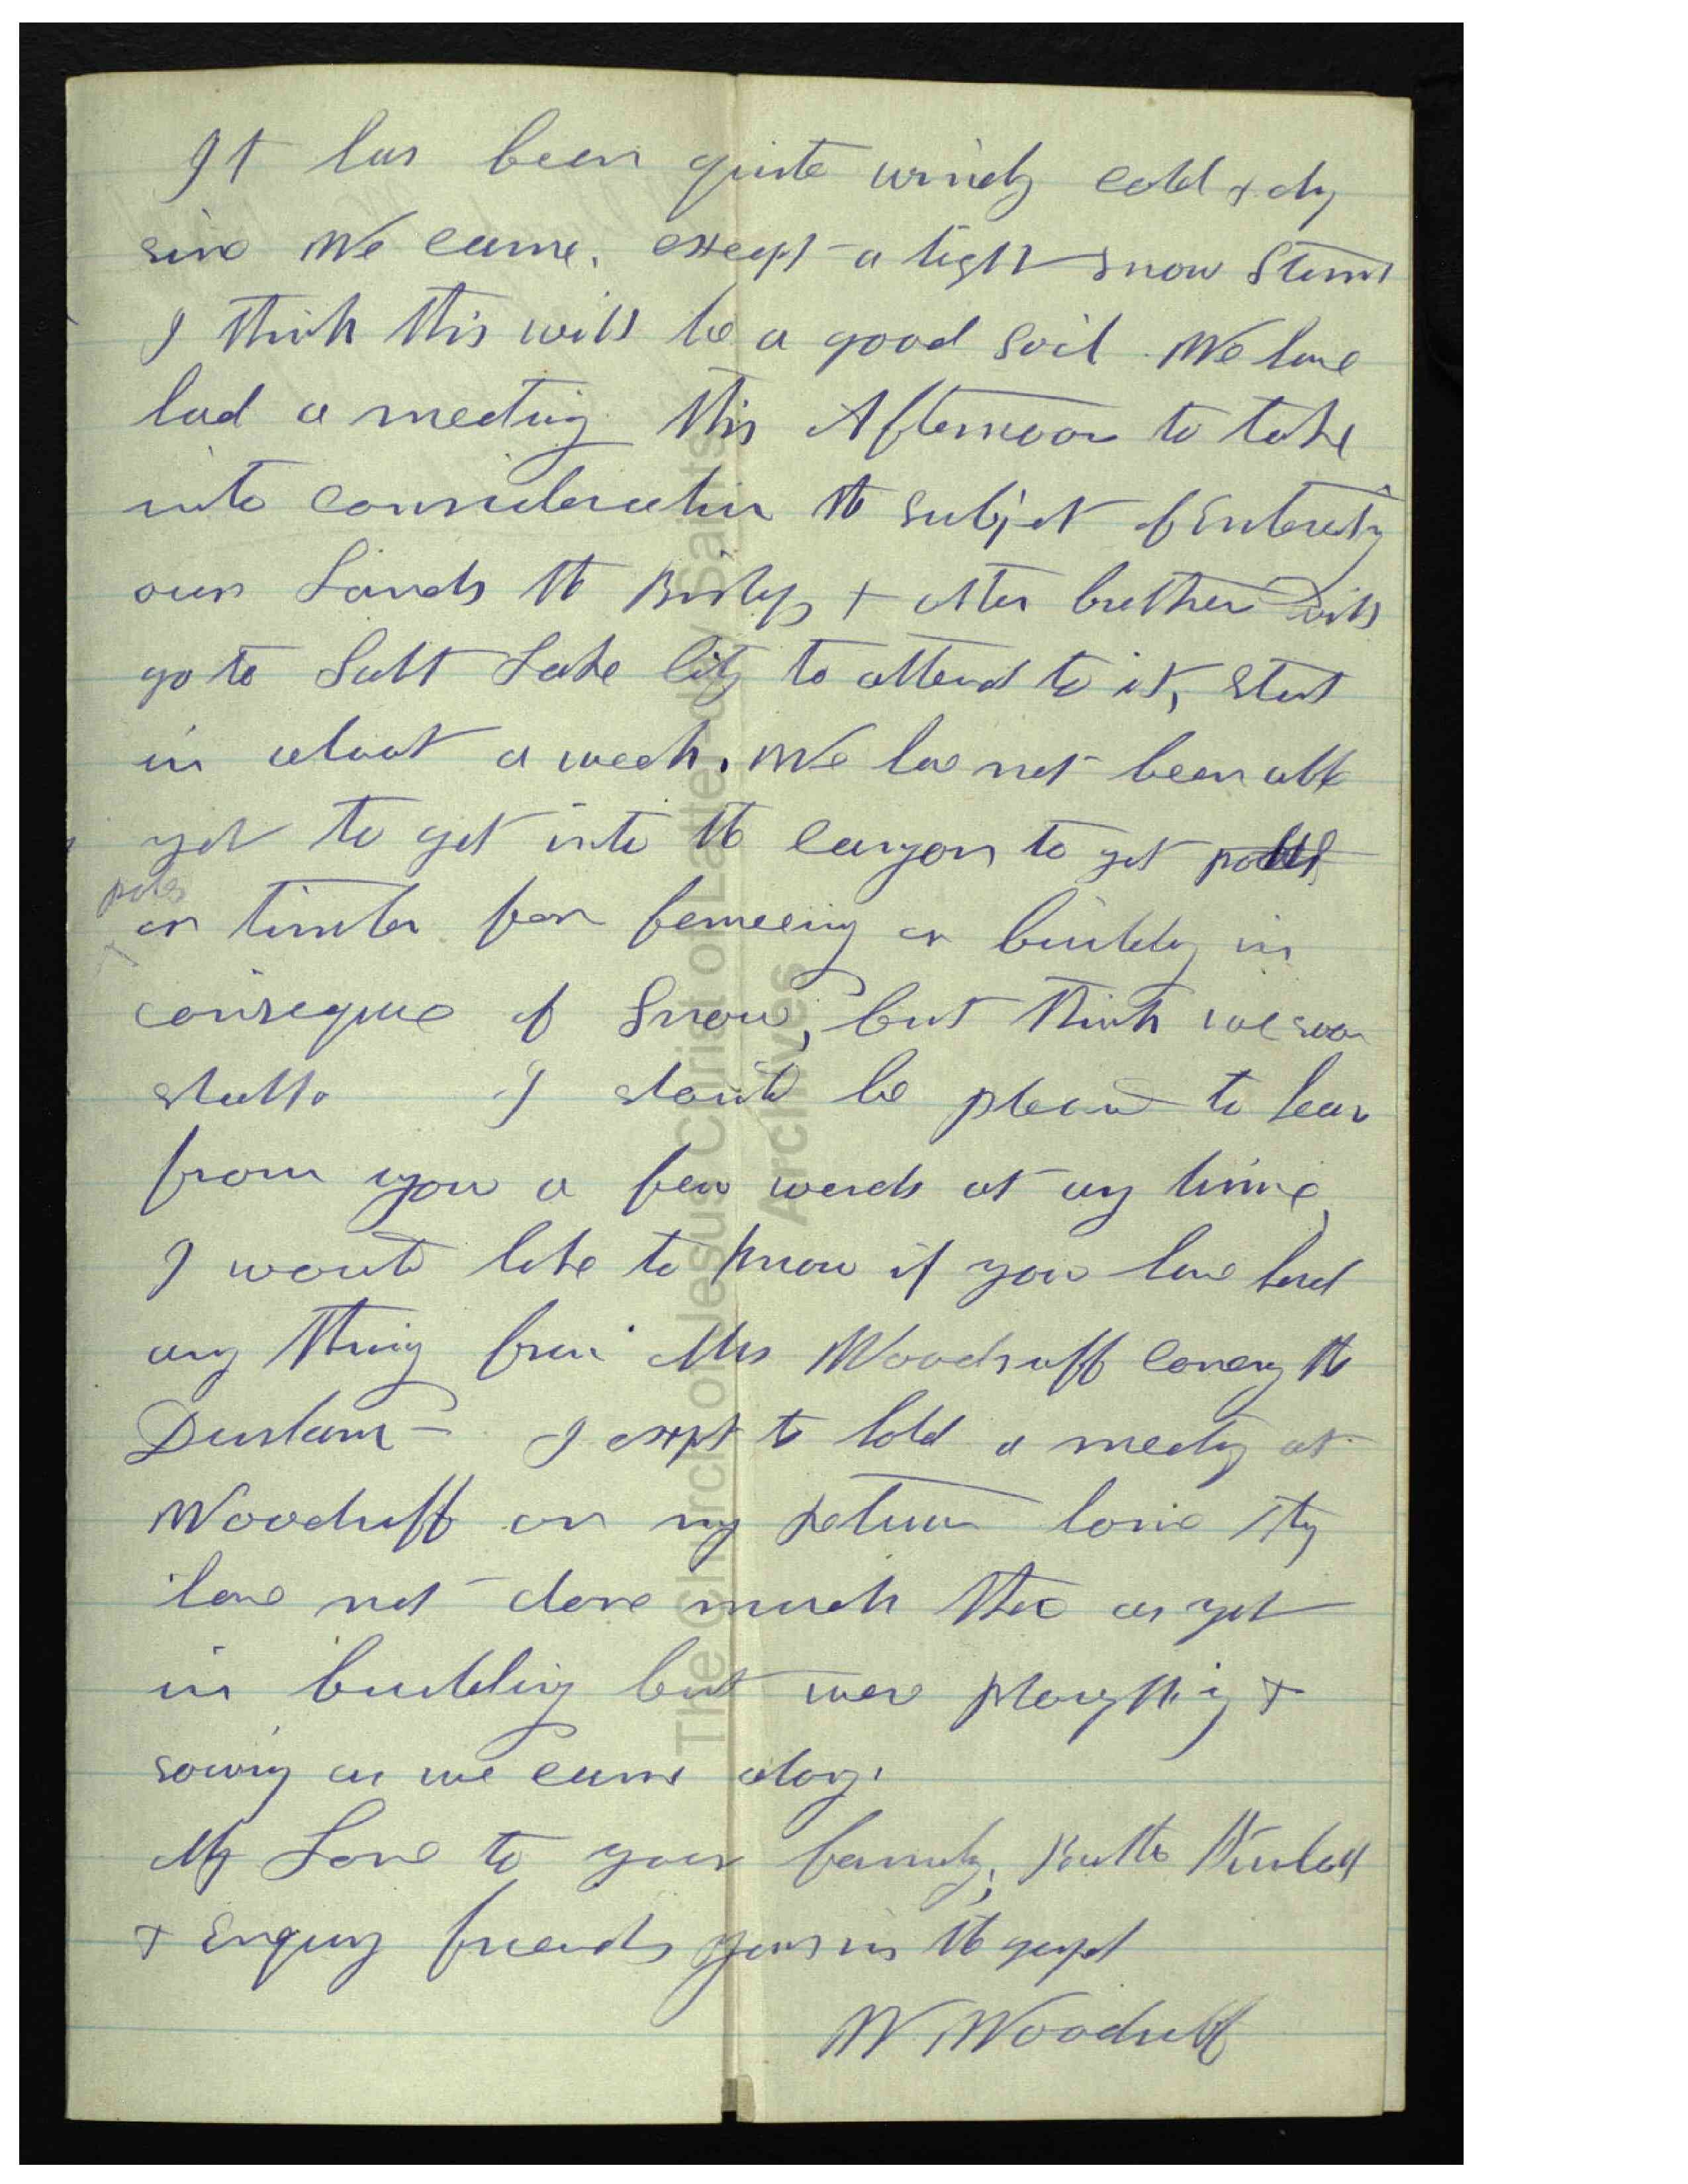 It has been quite windy cold & dry
since We came. except a light snow storm
I think this will be a good soil We have
had a meeting this Afternoon to take
into consideration the subject of Entering
our Lands the Bishop & other brethren will
go to Salt Lake City to attend to it, start
in about a week. We have not been able
yet to get into the canyon to get poles
poles
or timber for fenceing or building in
consequence of Snow, but think we soon
shall. I should be pleased to hear
from you a few words at any time,
I would like to know if you have heard
any thing from Mrs Woodruff concerning the
Durham - I expect to hold a meeting at
Woodruff on my return home they
have not done much there as yet
in building but were ploughing &
sowing as we came along.
My Love to your family, Brother Kimball
& Enquiring friends yours in the gospel
W. Woodruff
The Church of Jesus Christ of Latter-day Saints
Archives